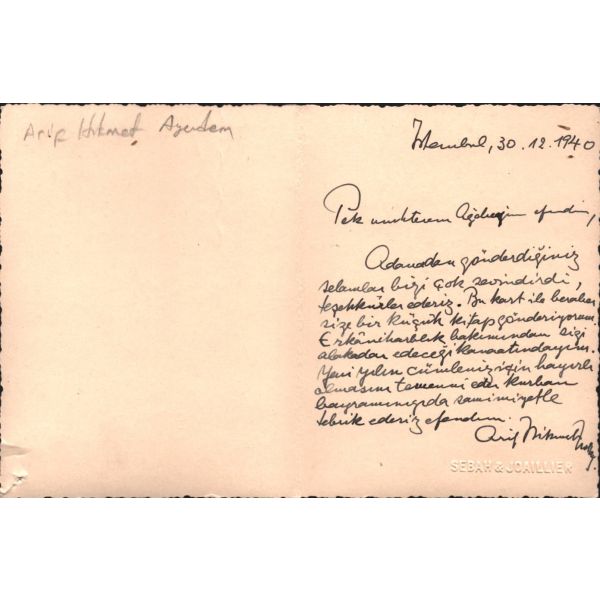 Arif Hikmet
İstanbul, 30.12.1940
Pek muhterem efendim,
Adanadan gönderdiğiniz
selamlar bizi çok sevindirdi,
teşekkürler ederiz. Bu kart ile beraber
size bir küçük kitap gönderiyorum.
Erkâniharblık bakımından sizi
alakadar edeceği kanaatındayım.
Yeni yılın cümlemiz için hayırlı
olmasını temenni eder kurban
bayramınızıda samimiyetle
tebrik ederiz efendim.
Arif Hikmet
SEBAH & JOAILLIER